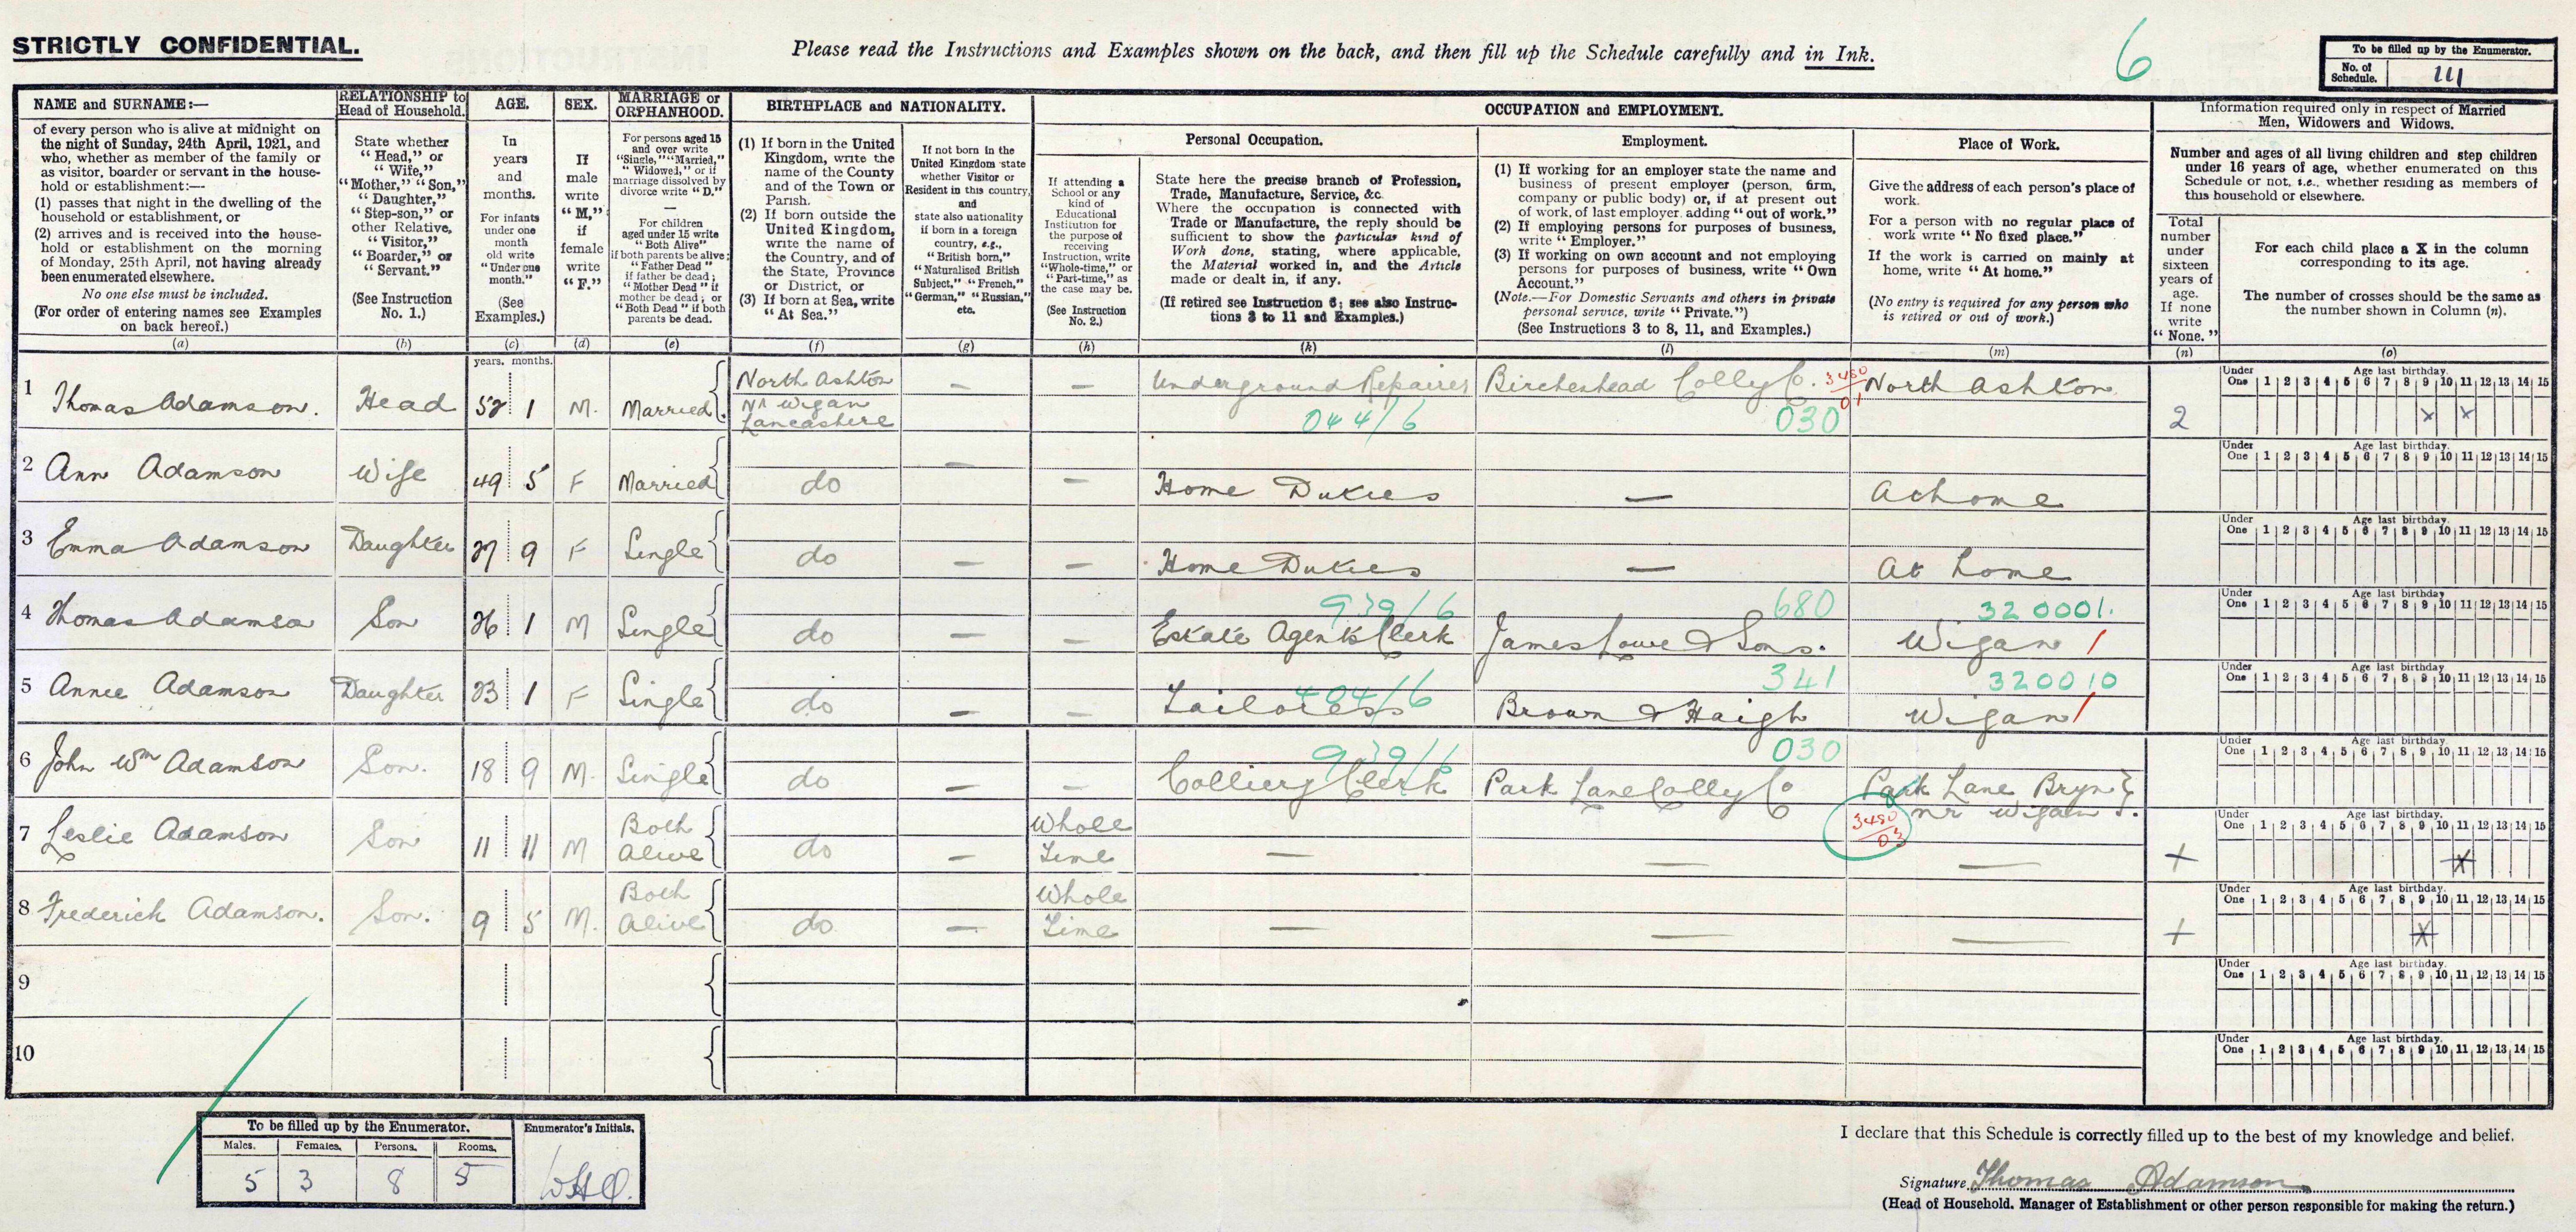 STRICTLY CONFIDENTIAL.
Please read the Instructions and Examples shown on the back, and then fill up the Schedule carefully and in Ink.
6
To be filled up by the Enumerator.
No. of Schedule. 111
NAME and SURNAME:—
of every person who is alive at midnight on
the night of Sunday, 24th April, 1921, and
who, whether as member of the family or
as visitor, boarder or servant in the house-
hold or establishment:—
(1) passes that night in the dwelling of the
household or establishment, or
(2) arrives and is received into the house-
hold or establishment on the morning
of Monday, 25th April, not having already
been enumerated elsewhere.
No one else must be included.
(For order of entering names see Examples
on back hereof.)
(a)
RELATIONSHIP to
Head of Household.
State whether
"Head," or
"Wife,"
"Mother," "Son,"
"Daughter,"
"Step-son," or
other Relative,
"Visitor,"
"Boarder," or
"Servant."
(See Instruction
No. 1.)
(b)
AGE.
In
years
and
months.
For infants
under one
month
old write
"Under one
month."
(See
Examples.)
(c)
SEX.
If
male
write
"M,"
if
female
write
"F."
(d)
MARRIAGE or
ORPHANHOOD.
For persons aged 15
and over write
"Single," "Married,"
"Widowed," or if
marriage dissolved by
divorce write "D."
—
For children
aged under 15 write
"Both Alive"
if both parents be alive;
"Father Dead"
if father be dead;
"Mother Dead" if
mother be dead; or
"Both Dead" if both
parents be dead.
(e)
BIRTHPLACE and NATIONALITY.
(1) If born in the United
Kingdom, write the
name of the County
and of the Town or
Parish.
(2) If born outside the
United Kingdom,
write the name of
the Country, and of
the State, Province
or District, or
(3) If born at Sea, write
"At Sea."
(f)
If not born in the
United Kingdom state
whether Visitor or
Resident in this country,
and
state also nationality
if born in a foreign
country, e.g.,
"British born,"
"Naturalised British
Subject," "French,"
"German," "Russian,"
etc.
(g)
OCCUPATION and EMPLOYMENT.
Personal Occupation.
If attending a
School or any
kind of
Educational
Institution for
the purpose of
receiving
Instruction, write
"Whole-time," or
"Part-time," as
the case may be.
(See Instruction
No. 2.)
(h)
State here the precise branch of Profession,
Trade, Manufacture, Service, &c.
Where the occupation is connected with
Trade or Manufacture, the reply should be
sufficient to show the particular kind of
Work done, stating, where applicable,
the Material worked in, and the Article
made or dealt in, if any.
(If retired see Instruction 6; see also Instruc-
tions 3 to 11 and Examples.)
(k)
Employment.
(1) If working for an employer state the name and
business of present employer (person, firm,
company or public body) or, if at present out
of work, of last employer, adding "out of work."
(2) If employing persons for purposes of business,
write "Employer."
(3) If working on own account and not employing
persons for purposes of business, write "Own
Account."
(Note.—For Domestic Servants and others in private
personal service, write "Private.")
(See Instructions 3 to 8, 11, and Examples.)
(l)
Place of Work.
Give the address of each person's place of
work.
For a person with no regular place of
work write "No fixed place."
If the work is carried on mainly at
home, write "At home."
(No entry is required for any person who
is retired or out of work.)
(m)
Information required only in respect of Married
Men, Widowers and Widows.
Number and ages of all living children and step children
under 16 years of age, whether enumerated on this
Schedule or not, i.e., whether residing as members of
this household or elsewhere.
Total
number
under
sixteen
years of
age.
If none
write
"None."
(n)
For each child place a X in the column
corresponding to its age.
The number of crosses should be the same as
the number shown in Column (n).
(o)
years. months.
1 Thomas Adamson. Head 52 1 M. Married. North Ashton Nr Wigan Lancashire — — Underground Repairer 044/6 Birchenhead Colly Co. 030 3480/01 North Ashton 2 x x
Under One Age last birthday. 1 2 3 4 5 6 7 8 9 10 11 12 13 14 15
2 Ann Adamson Wife 49 5 F Married do — — Home Duties — At home
Under One Age last birthday. 1 2 3 4 5 6 7 8 9 10 11 12 13 14 15
3 Emma Adamson Daughter 27 9 F Single do — — Home Duties — At home
Under One Age last birthday. 1 2 3 4 5 6 7 8 9 10 11 12 13 14 15
4 Thomas Adamson Son 26 1 M Single do — — 939/6 Estate Agents Clerk 680 James Lowe & Sons. 320001. Wigan /
Under One Age last birthday 1 2 3 4 5 6 7 8 9 10 11 12 13 14 15
5 Annie Adamson Daughter 23 1 F Single do — — Tailoress 404/6 341 Brown & Haigh 320010 Wigan /
Under One Age last birthday 1 2 3 4 5 6 7 8 9 10 11 12 13 14 15
6 John Wm Adamson Son. 18 9 M. Single do — — 939/6 Colliery Clerk 030 Park Lane Colly Co Park Lane Bryn nr Wigan. 3480/03
Under One Age last birthday. 1 2 3 4 5 6 7 8 9 10 11 12 13 14 15
7 Leslie Adamson Son 11 11 M Both Alive do — Whole Time — — — + x
Under One Age last birthday. 1 2 3 4 5 6 7 8 9 10 11 12 13 14 15
8 Frederick Adamson. Son. 9 5 M. Both Alive do — Whole Time — — — + x
Under One Age last birthday. 1 2 3 4 5 6 7 8 9 10 11 12 13 14 15
9
Under One Age last birthday. 1 2 3 4 5 6 7 8 9 10 11 12 13 14 15
10
Under One Age last birthday. 1 2 3 4 5 6 7 8 9 10 11 12 13 14 15
To be filled up by the Enumerator.
Males. Females. Persons. Rooms.
5 3 8 5
Enumerator's Initials.
I declare that this Schedule is correctly filled up to the best of my knowledge and belief.
Signature Thomas Adamson
(Head of Household, Manager of Establishment or other person responsible for making the return.)